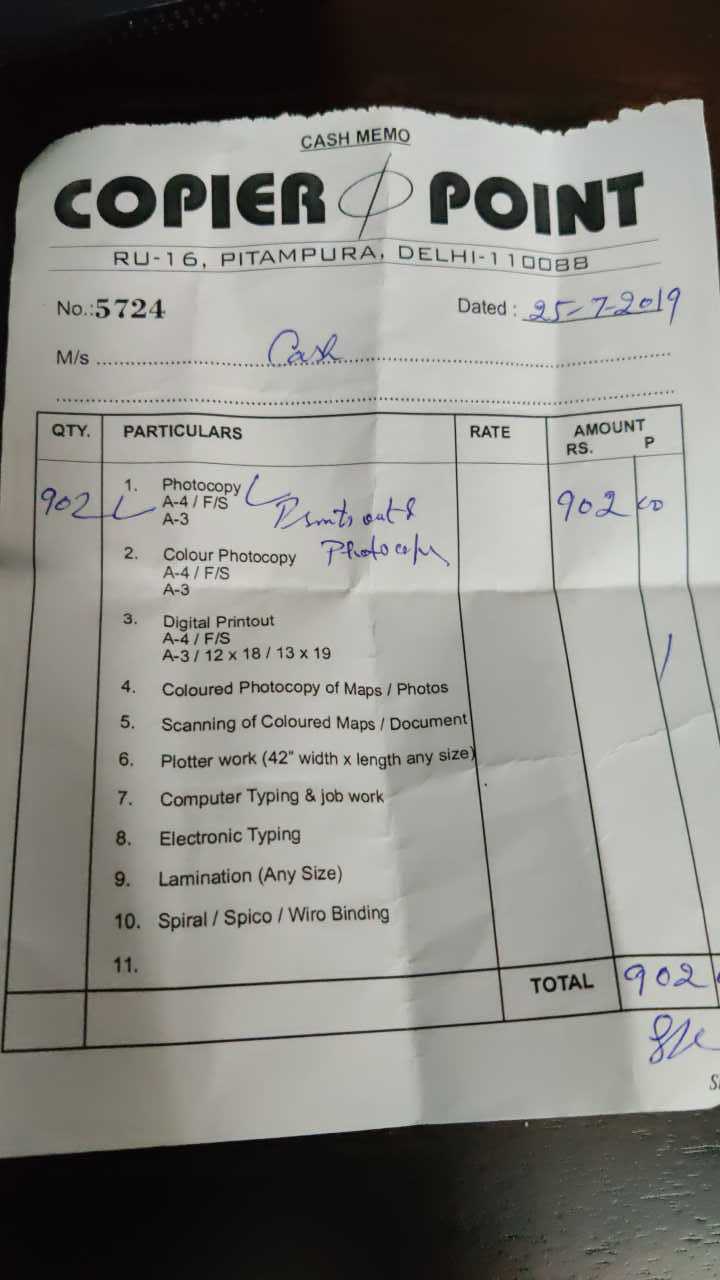 CASH MEMO
COPIER POINT
RU-16, PITAMPURA, DELHI-110088
No.:5724 Dated : 25-7-2019
M/s Cash
QTY. PARTICULARS RATE AMOUNT
RS. P
902 1. Photocopy 902 00
A-4 / F/S Prints out &
A-3 Photocopy
2. Colour Photocopy
A-4 / F/S
A-3
3. Digital Printout
A-4 / F/S
A-3 / 12 x 18 / 13 x 19
4. Coloured Photocopy of Maps / Photos
5. Scanning of Coloured Maps / Document
6. Plotter work (42" width x length any size)
7. Computer Typing & job work
8. Electronic Typing
9. Lamination (Any Size)
10. Spiral / Spico / Wiro Binding
11.
TOTAL 902